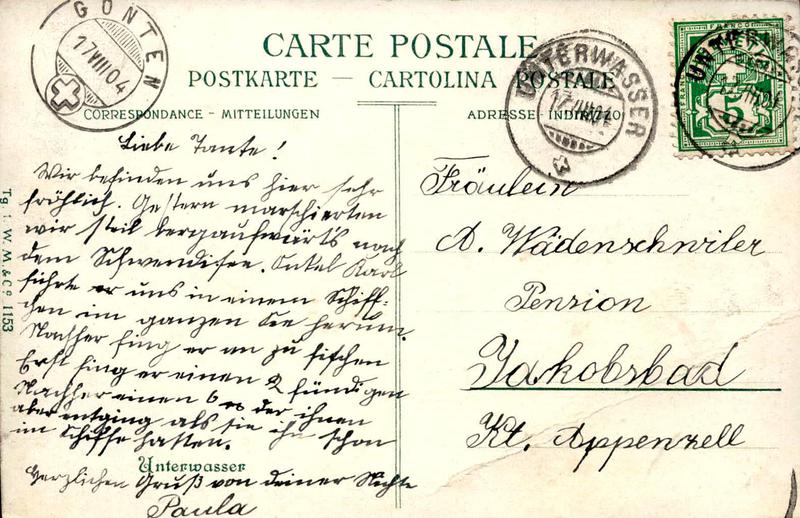 GONTEN
17.VIII.04
CARTE POSTALE
POSTKARTE — CARTOLINA POSTALE
CORRESPONDANCE - MITTEILUNGEN
ADRESSE - INDIRIZZO
UNTERWASSER
17.VIII.04
FRANCO
5
Liebe Tante!
Wir befinden uns hier sehr
fröhlich. Gestern marschierten
wir steil bergaufwärts nach
dem Schwendisee. Onkel Karl
führte er uns in einem Schiff-
chen im ganzen See herum.
Nachher fing er an zu fischen
Erst fing er einen 2 pfündigen
Nachher einen 6 der ihnen
aber entging als sie ihn schon
im Schiffe hatten.
Unterwasser
Herzlichen Gruß von deiner Nichte
Paula
Fräulein
A. Wädenschwiler
Penzion
Jakobsbad
Kt. Appenzell
Tg. : W. M. & Cº. 1153